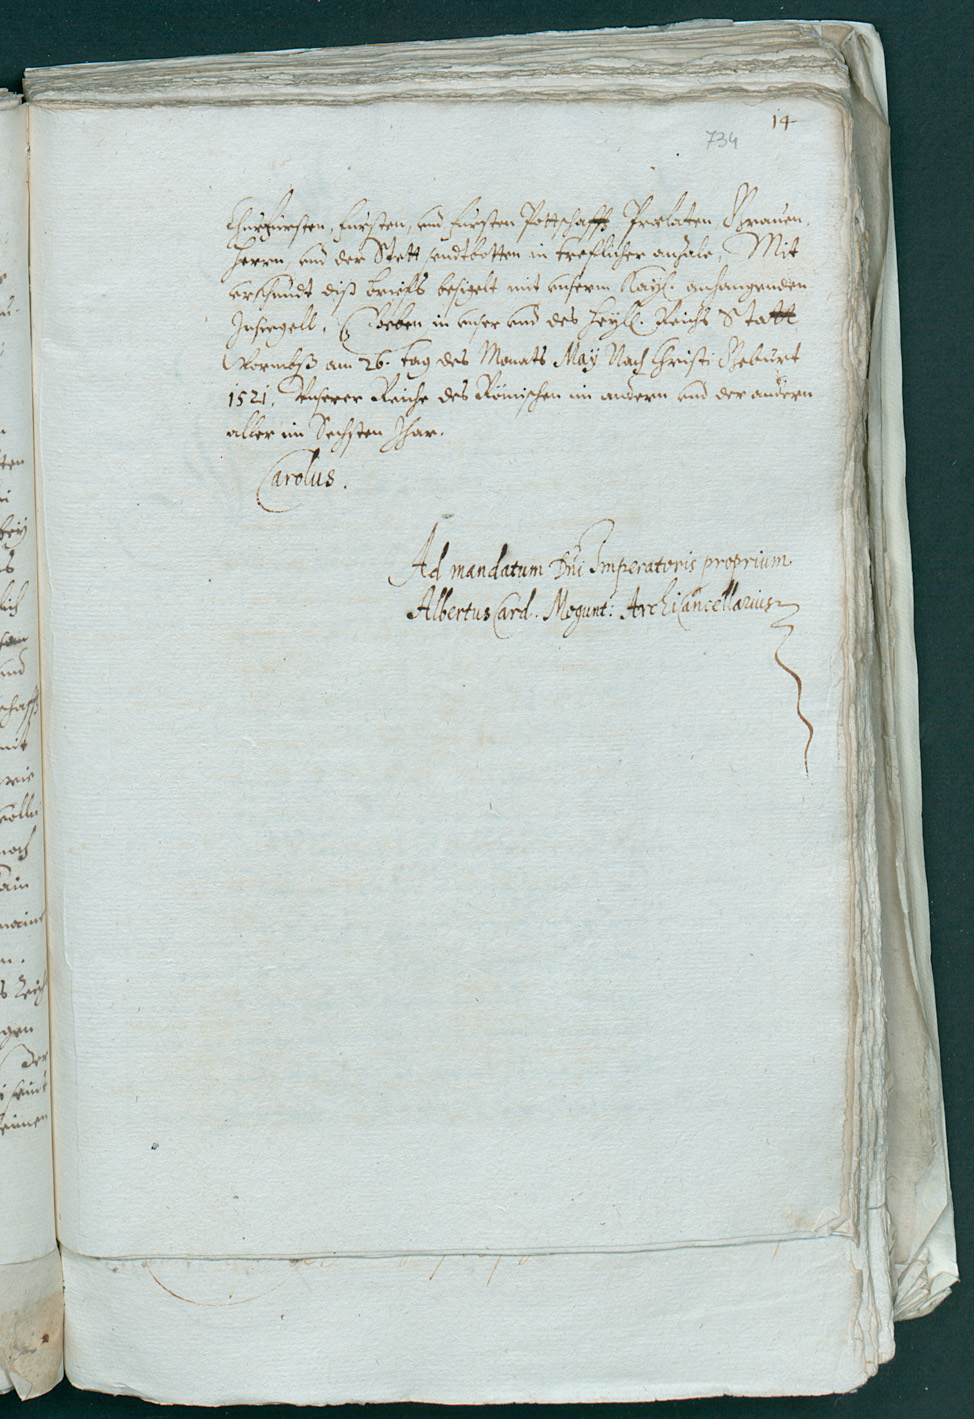 14
734
Churfürsten, Fürsten, und Fürsten Pottschafft Praelaten, Grauen,
Herrn, und der Stett sendtbotten in trefflicher anzale, Mit
urkhundt diß brieffs besigelt mit unserm Kayl. anhangenden
Insiegell, Geeben in unser und des Heyl. Reichs Statt
Wormbß am 26. tag des Monats May Nach Christi Geburt
1521. Unserer Reiche des Römischen im andern und der andern
aller im Sechsten Jhar.
Carolus.
Ad mandatum Dni Imperatoris proprium
Albertus Card. Mogunt: Archicancellarius